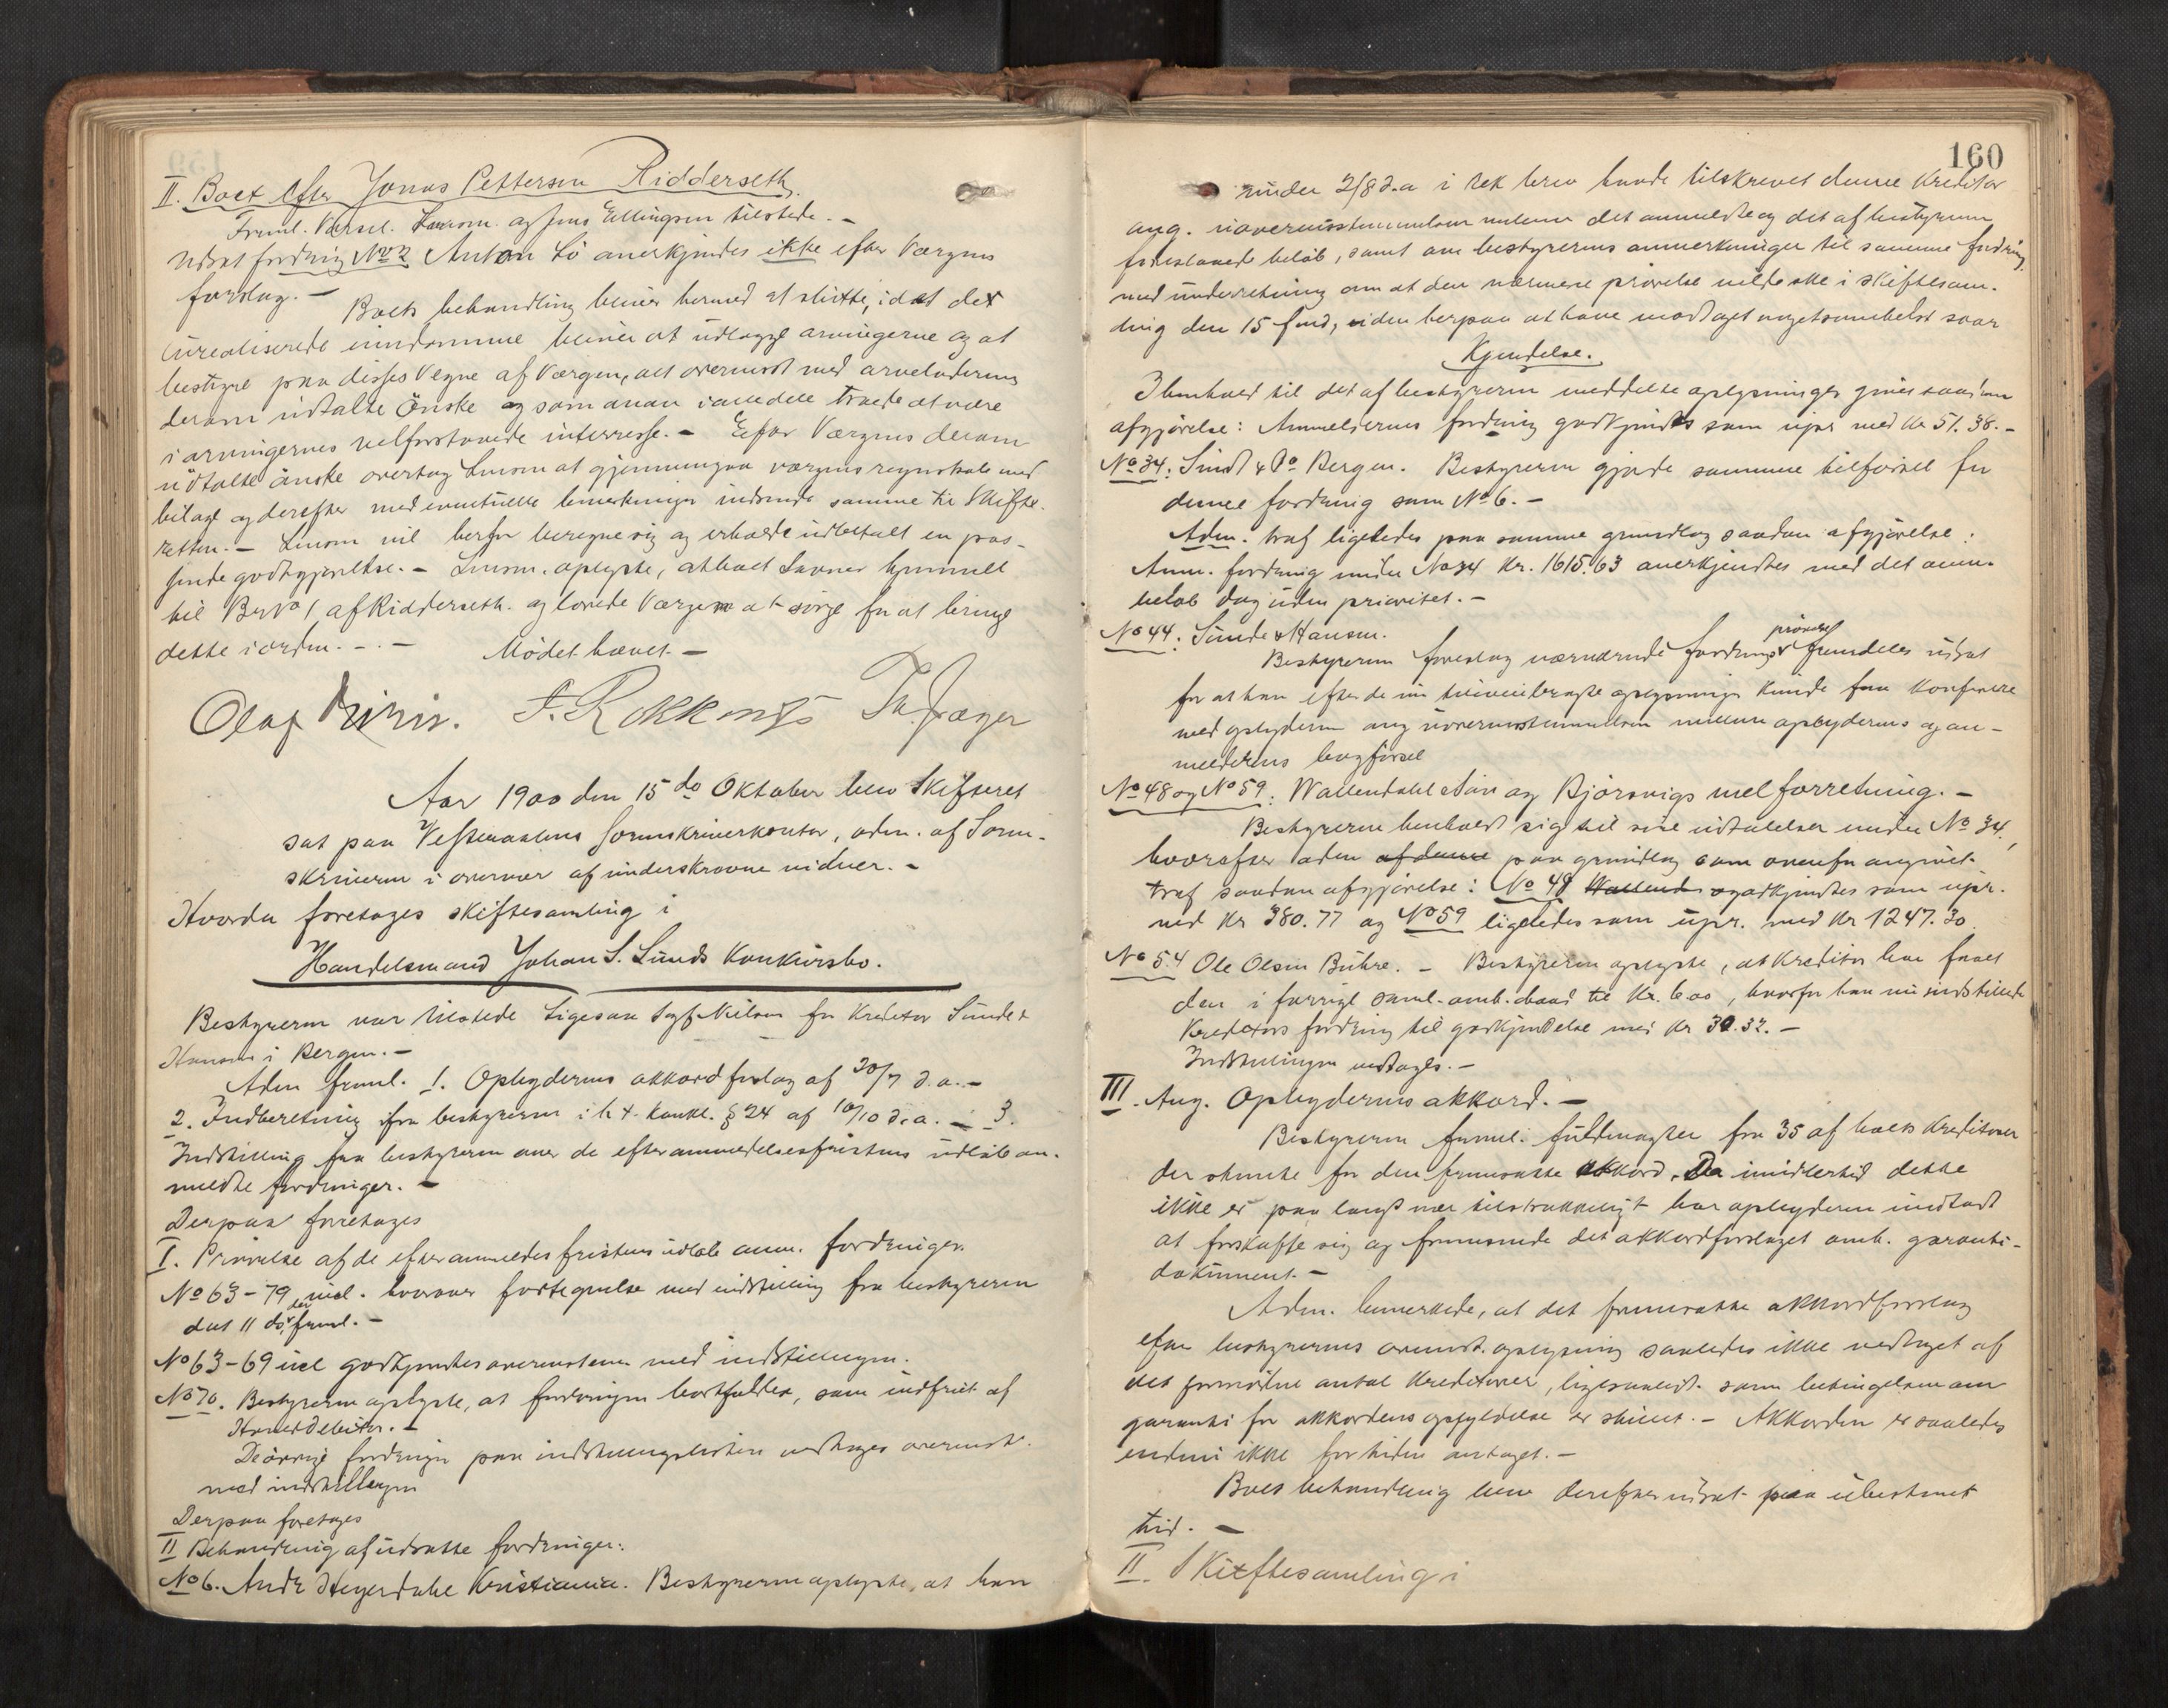 II. Boet efter Jonas Pettersen Ridderseth.
Freml. Varsel. Lensm. og Jens Ellingsen tilstede. -
Udsat fordring No 2 Anton Lö anerkjendes ikke efter Værgens
forslag. -
Boets behandling bliver hermed at slutte, idet det
urealiserede eiendomme bliver at udlægge arvingerne og at
bestyre paa disses Vegne af Værgen, alt overensst med arveladerens
derom udtalte önske og som ansaaes at være
i arvingernes velforstaaede interresse. - Efter Værgens derom
udtalte önske overtog Lensm at gjennemgaa værgens regnskab med
bilage og derefter med eventuelle bemerkninger indsende samme til Skifte-
retten. - Lensm vil herfor beregne sig og erholde udbetalt en pas-
sende godtgjørelse. - Lensm. oplyste, at boet savner hjemmel
til Br No 1 af Ridderseth. og lovede Værgen at sörge for at bringe
dette i orden. - . -
Mödet hævet. -
Olaf F. Rokkones Th. Jæger
Aar 1900 den 15de Oktober blev Skifteret
sat paa Vesteraalens Sorenskriverkontor, adm. af Soren-
skriveren i overvær af underskrevne vidner. -
Hvorda foretoges skiftesamling i
Handelsmand Johan S. Sunds Konkursbo.
Bestyreren var tilstede ligesaa Sagf. Nilsen for Kreditor Sunde &
Hansen i Bergen. -
Adm freml. 1. Opbyderens akkordforslag af 20/7 d.a. -
2. Indberetning fra bestyreren i h t. konkl. § 24 af 10/10 d.a. - 3.
Indstilling fra bestyreren over de efter anmeldelsesfristens udløb an-
meldte fordringer. -
Derpaa foretoges
I. Prövelse af de efter anmeldesfristens udlöb anm. fordringer.
No 63-79 incl. hvorover fortegnelse med indstilling fra bestyreren
dat 11 ds. blev freml. -
No 63-69 incl godkjendtes overensstem med indstillingen.
No 70. Bestyreren oplyste, at fordringen bortfalder, som indfriet af
Hoveddebitor. -
De övrige fordringer paa indstillingslisten vedtoges overensst.
med indstillingen
Derpaa foretoges
II Behandling af udsatte fordringer:
No 6. Andr Heyerdahl Kristiania. Bestyreren oplyste, at han
160
under 2/8 d.a i rek brev havde tilskrevet denne Kreditor
ang. uoverensstemmelsen mellem det anmeldte og det af bestyreren
foreslaaede belöb, samt om bestyrerens anmerkninger til samme fordring,
med underretning om at den nærmere prövelse vilde ske i skiftesam-
ling den 15 ds, uden herpaa at have modtaget nogetsomhelst svar
Kjendelse.
I henhold til det af bestyreren meddelte oplysninger gives saadan
afgjörelse: Anmelderens fordring godkjendes som upr med Kr 51.38. -
No 34. Sund & Co Bergen. Bestyreren gjorde samme tilförsel for
denne fordring som No 6. -
Adm. traf ligeledes paa samme grundlag saadan afgjörelse:
Anm. fordring under No 34 Kr. 1615.63 anerkjendtes med det anm.
belöb dog uden prioritet. -
No 44. Sunde & Hansen.
Bestyreren foreslog nærværende fordrings prövelse fremdeles udsat
for at han efter de nu tilveiebragte oplysninger kunde faa konferere
med opbyderen ang uoverensstemmelsen mellem opbyderens og an-
melderens bogförsel
No 48 og No 59: Wallendahl & Sön og Björsvigs melforretning. -
Bestyreren henholdt sig til sine udtalelser under No 34,
hvorefter adm af denne paa grundlag som ovenfor angivet
traf saadan afgjörelse: No 48 Wallends godkjendtes som upr.
med Kr 380.77 og No 59 ligeledes som upr. med Kr 1247.30
No 54 Ole Olsen Buhre. - Bestyreren oplyste, at Kreditor har faaet
den i forrige saml. omh. baad til Kr. 6.00, hvorfor han nu indstillede
Kreditors fordring til godkjendelse med Kr 30.32. -
Indstillingen vedtoges. -
III. Ang. Opbyderens akkord. -
Bestyreren freml. fuldmagter fra 35 af boets Kreditorer
der stemte for den fremsatte akkord. Da imidlertid dette
ikke er paa langt nær tilstrækkeligt har opbyderen undladt
at forskaffe sig og fremsende det akkordforslaget omh. garanti-
dokument. -
Adm. bemerkede, at det fremsatte akkordforslag
efter bestyrerens ovenst. oplysning saaledes ikke vedtaget af
det fornödne antal Kreditorer, ligesaalidt som betingelsen om
garanti for akkordens opfyldelse er skeet. - Akkorden er saaledes
endnu ikke for tiden antaget. -
Boets behandling blev derefter udsat paa ubestemt
tid. -
II. Skiftesamling i